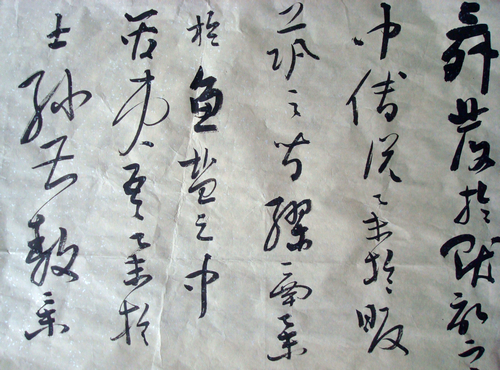 舜發於畎畝之
中傅說舉於版
築之間膠鬲舉
於魚鹽之中
管夷吾舉於
士孫叔敖舉